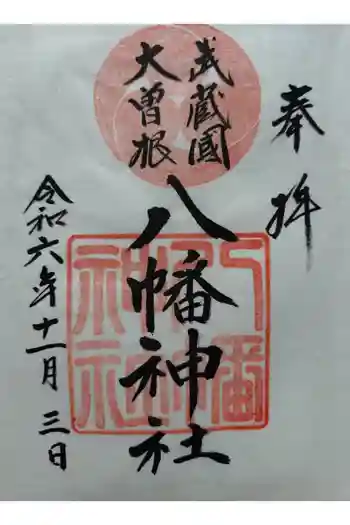 奉拝
武蔵國
大曽根
八幡神社
令和六年十一月三日
八幡神社